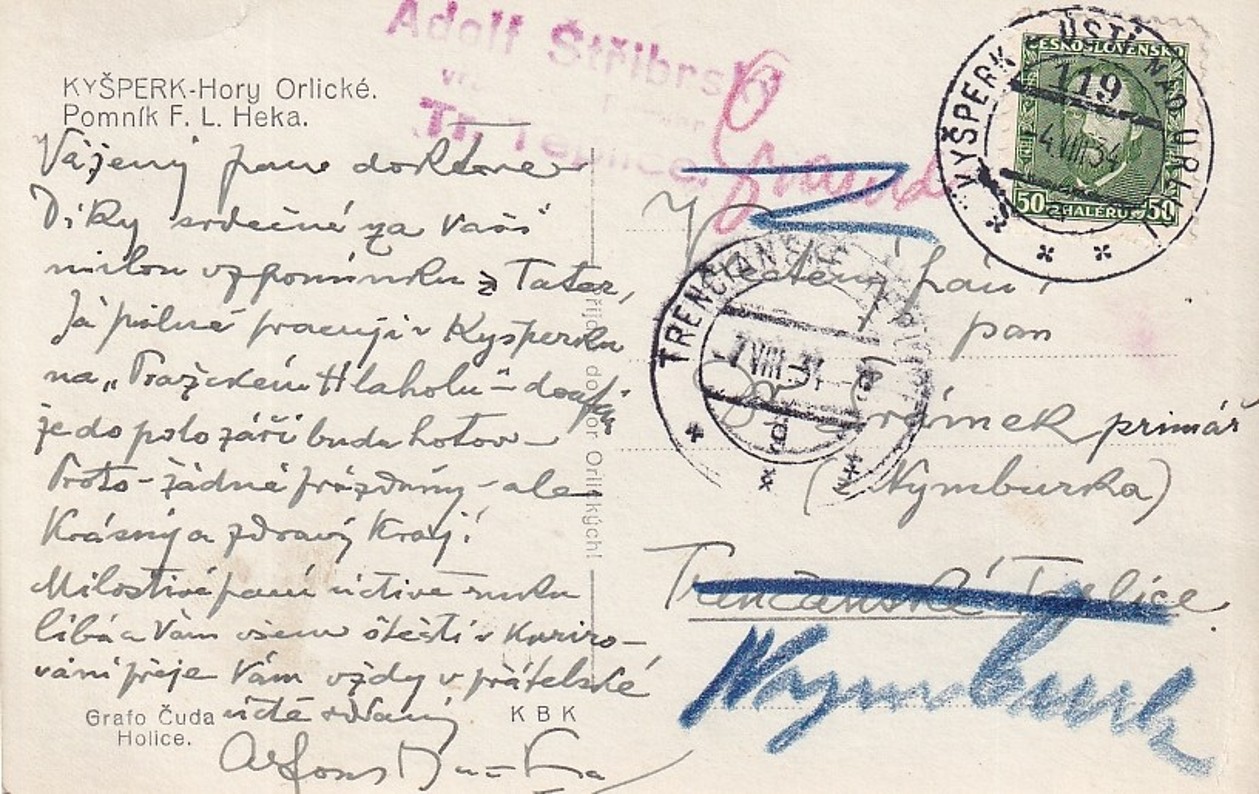 KYŠPERK-Hory Orlické.
Pomník F. L. Heka.
Adolf Stříbrský
Tr. Teplice.
ČESKOSLOVENSKO
50 HALÉŘŮ 50
KYŠPERK ÚSTÍ NAD ORLICÍ
119
4.VIII.34
TRENČIANSKE TEPLICE
7.VIII.34
Vážený pane doktore
Díky srdečné za Vaši
milou vzpomínku z Tater,
Já pilně pracuji v Kyšperku
na „Pražském Hlaholu" – doufám
že do polo září budu hotov –
Proto – žádné prázdniny – ale
Krásný a zdravý Kraj!
Milostivé paní uctivě ruku
líbá a Vám všem štěstí v Kuriro-
vání přeje Vám vždy v přátelské
úctě oddaný
Alfons Mucha
Grafo Čuda
Holice.
K B K
Orlických!
pán,
pan
primář
(z Nymburka)
Trenčanské Teplice
Nymburk